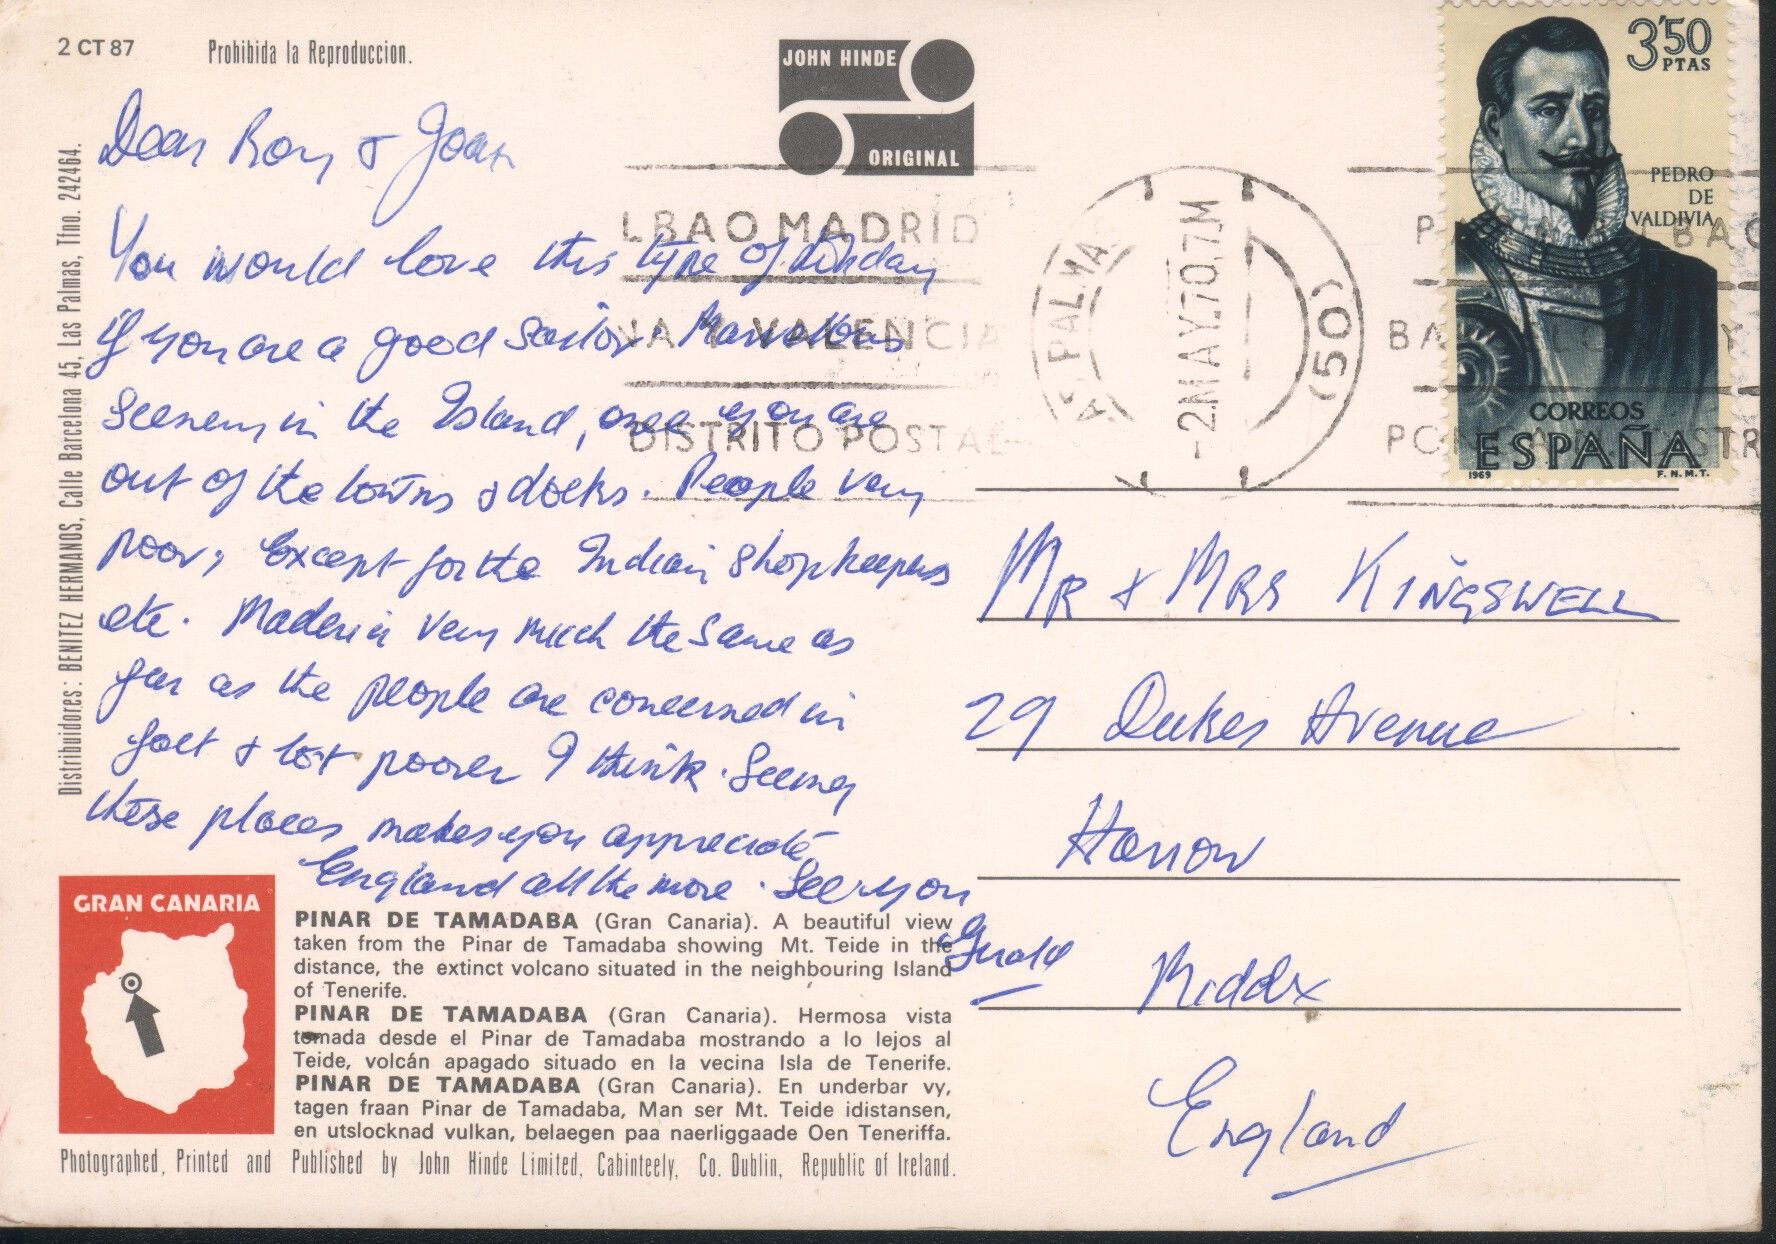 2 CT 87
Prohibida la Reproduccion.
JOHN HINDE
ORIGINAL
3'50
PTAS
PEDRO
DE
VALDIVIA
CORREOS
ESPAÑA
1969
F.N.M.T.
LBAO MADRID
NA Y VALENCIA
DISTRITO POSTAL
AS PALMA
-2.MAY.70.7.M
(50)
Distribuidores: BENITEZ HERMANOS, Calle Barcelona 45, Las Palmas, Tfno. 242464.
Dear Roy & Joan
You would love this type of holiday
if you are a good Sailor. Marvellous
Scenery in the Island, once you are
out of the towns & docks. People very
poor, except for the Indian Shopkeepers
etc. Madeira very much the same as
far as the people are concerned in
fact a lot poorer I think. Seeing
these places makes you appreciate
England all the more. See you
Gerald
MR & MRS KINGSWELL
29 Dukes Avenue
Harrow
Middx
England
GRAN CANARIA
PINAR DE TAMADABA (Gran Canaria). A beautiful view
taken from the Pinar de Tamadaba showing Mt. Teide in the
distance, the extinct volcano situated in the neighbouring Island
of Tenerife.
PINAR DE TAMADABA (Gran Canaria). Hermosa vista
tomada desde el Pinar de Tamadaba mostrando a lo lejos al
Teide, volcán apagado situado en la vecina Isla de Tenerife.
PINAR DE TAMADABA (Gran Canaria). En underbar vy,
tagen fraan Pinar de Tamadaba, Man ser Mt. Teide idistansen,
en utslocknad vulkan, belaegen paa naerliggaade Oen Teneriffa.
Photographed, Printed and Published by John Hinde Limited, Cabinteely, Co. Dublin, Republic of Ireland.